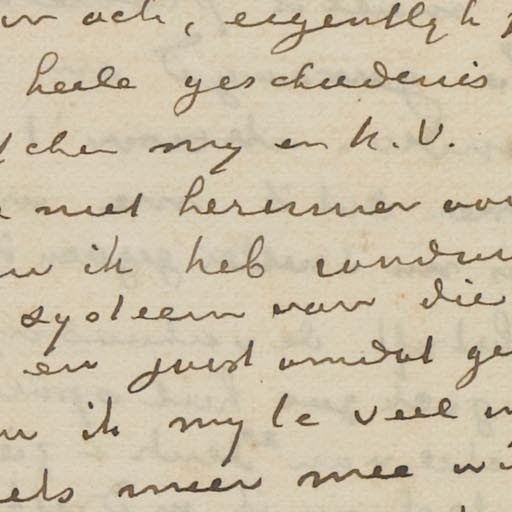 ach, eigentlyk
heele geschiedenis
my en K.V.
niet herinner
ik heb rondum
systeem van die
en juist omdat ge
ik my te veel
meer mee